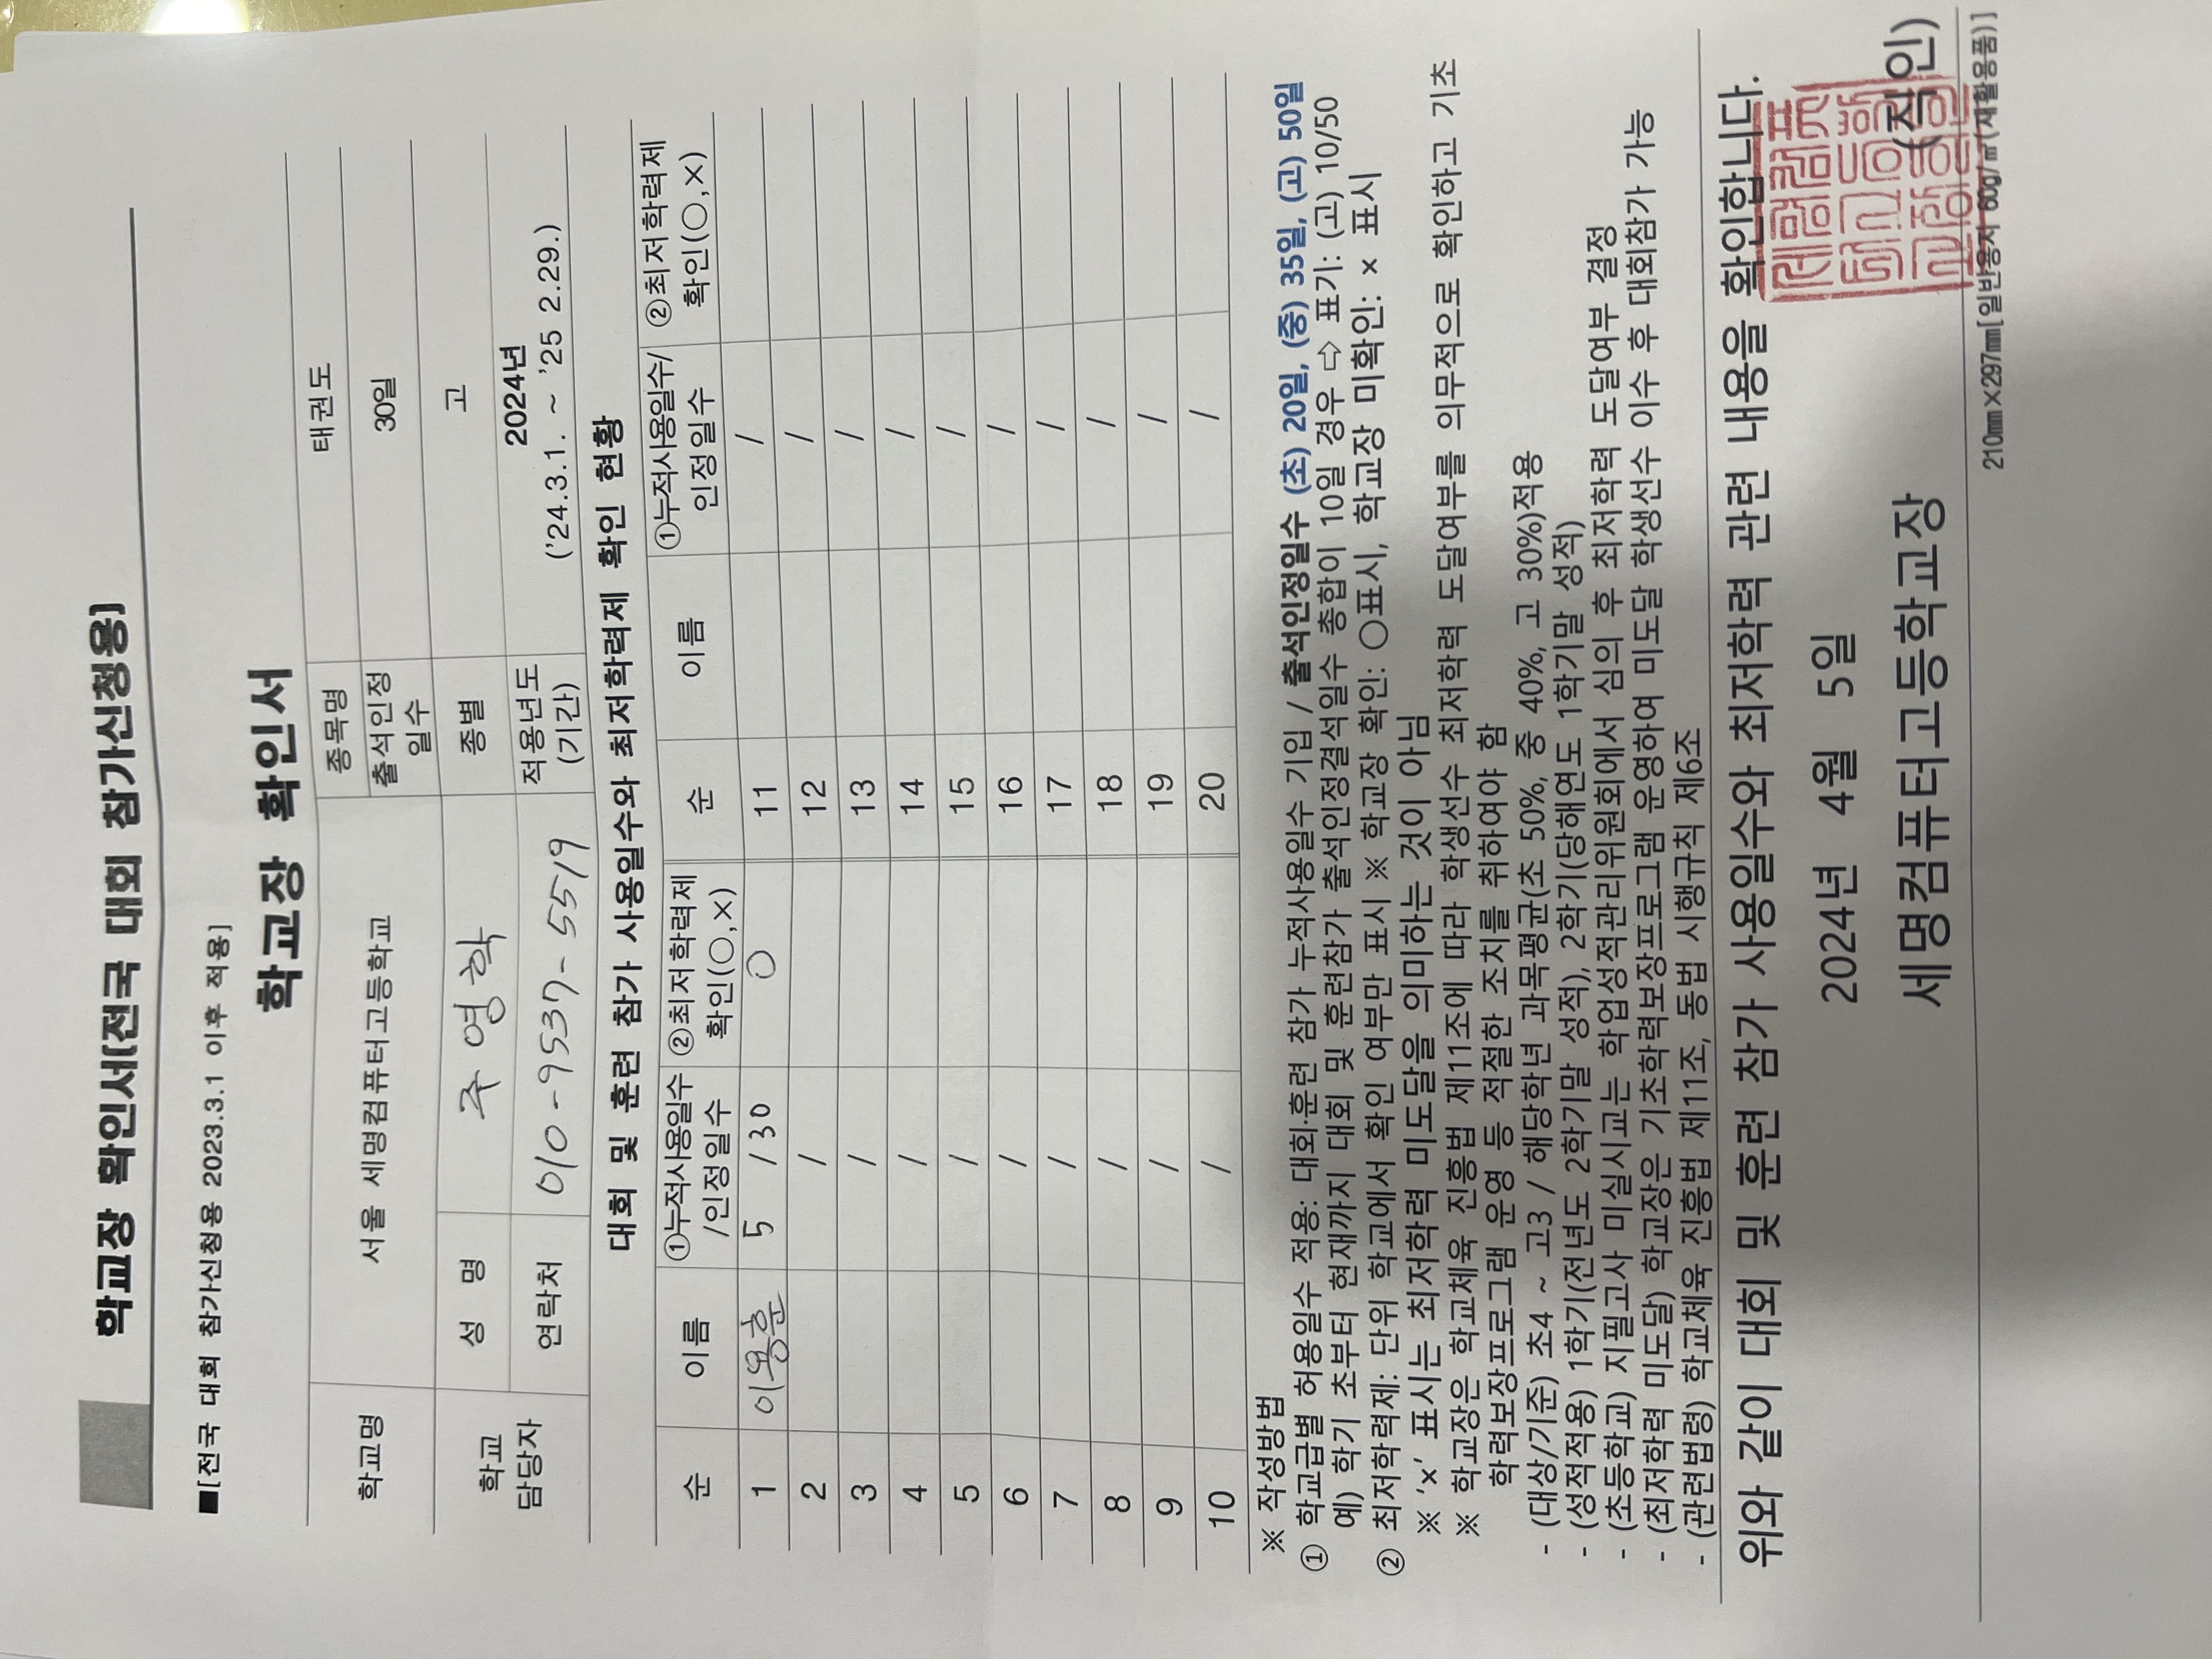 학교장 확인서(전국 대회 참가신청용)
■[전국 대회 참가신청용 2023.3.1 이후 적용]
학교장 확인서
학교명 서울 세명컴퓨터고등학교 종목명 태권도
출석인정일수 30일
학교 담당자 성 명 주영학 종별 고
연락처 010-9537-5519 적용년도 (기간) 2024년 ('24.3.1. ~ '25 2.29.)
대회 및 훈련 참가 사용일수와 최저학력제 확인 현황
순 이름 ①누적사용일수/인정일수 ②최저학력제 확인(○,×) 순 이름 ①누적사용일수/인정일수 ②최저학력제 확인(○,×)
1 이용훈 5 /30 ○ 11 /
2 / 12 /
3 / 13 /
4 / 14 /
5 / 15 /
6 / 16 /
7 / 17 /
8 / 18 /
9 / 19 /
10 / 20 /
※ 작성방법
① 학교급별 허용일수 적용: 대회·훈련 참가 누적사용일수 기입 / 출석인정일수 (초) 20일, (중) 35일, (고) 50일
예) 학기 초부터 현재까지 대회 및 훈련참가 출석인정결석일수 총합이 10일 경우 ⇨ 표기: (고) 10/50
② 최저학력제: 단위 학교에서 확인 여부만 표시 ※ 학교장 확인: ○표시, 학교장 미확인: × 표시
※ '×' 표시는 최저학력 미도달을 의미하는 것이 아님
※ 학교장은 학교체육 진흥법 제11조에 따라 학생선수 최저학력 도달여부를 의무적으로 확인하고 기초
학력보장프로그램 운영 등 적절한 조치를 취하여야 함
- (대상/기준) 초4 ~ 고3 / 해당학년 과목평균(초 50%, 중 40%, 고 30%)적용
- (성적적용) 1학기(전년도 2학기말 성적), 2학기(당해연도 1학기말 성적)
- (초등학교) 지필고사 미실시교는 학업성적관리위원회에서 심의 후 최저학력 도달여부 결정
- (최저학력 미도달) 학교장은 기초학력보장프로그램 운영하여 미도달 학생선수 이수 후 대회참가 가능
- (관련법령) 학교체육 진흥법 제11조, 동법 시행규칙 제6조
위와 같이 대회 및 훈련 참가 사용일수와 최저학력 관련 내용을 확인합니다.
2024년 4월 5일
세명컴퓨터고등학교장 (직인)
210㎜×297㎜[일반용지 60g/㎡(재활용품)]